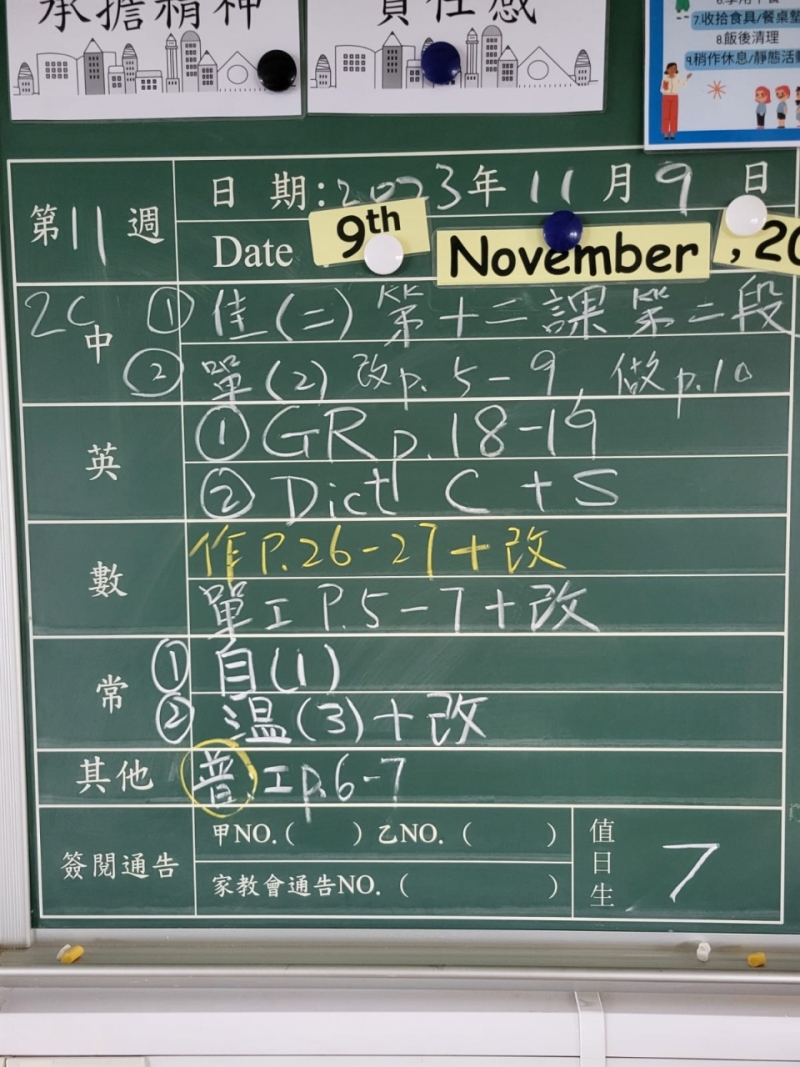 承擔精神
責任感
7.收拾食具/餐桌墊
8.飯後清理
9.稍作休息/靜態活動
第11週
日 期：2023年11月9日
Date 9th November, 20
2C
中 ① 佳(二)第十二課第二段
② 單(2) 改p. 5-9, 做p.10
英 ① GR p.18-19
② Dict C + S
數 作P.26-27+改
單工 P.5-7+改
常 ① 自(1)
② 溫(3)+改
其他 普工p.6-7
簽閱通告 甲NO.( ) 乙NO.( )
家教會通告NO.( )
值日生 7